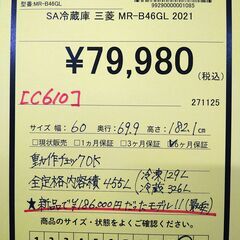 型番:MR-B46GL
99290000001085
SA冷蔵庫 三菱 MR-B46GL 2021
¥79,980
(税込)
[C610]
271125
サイズ 幅: 60 奥行: 69.9 高さ: 182.1cm
□現状販売 □1ヵ月保証 □3ヶ月保証 6ヶ月保証
動作チェックOK
全定格内容積 455L (冷凍129L
冷蔵326L
★新品で¥186,000円だったモデル!!(最安)
商品のサイズ・状態をよくご確認ください